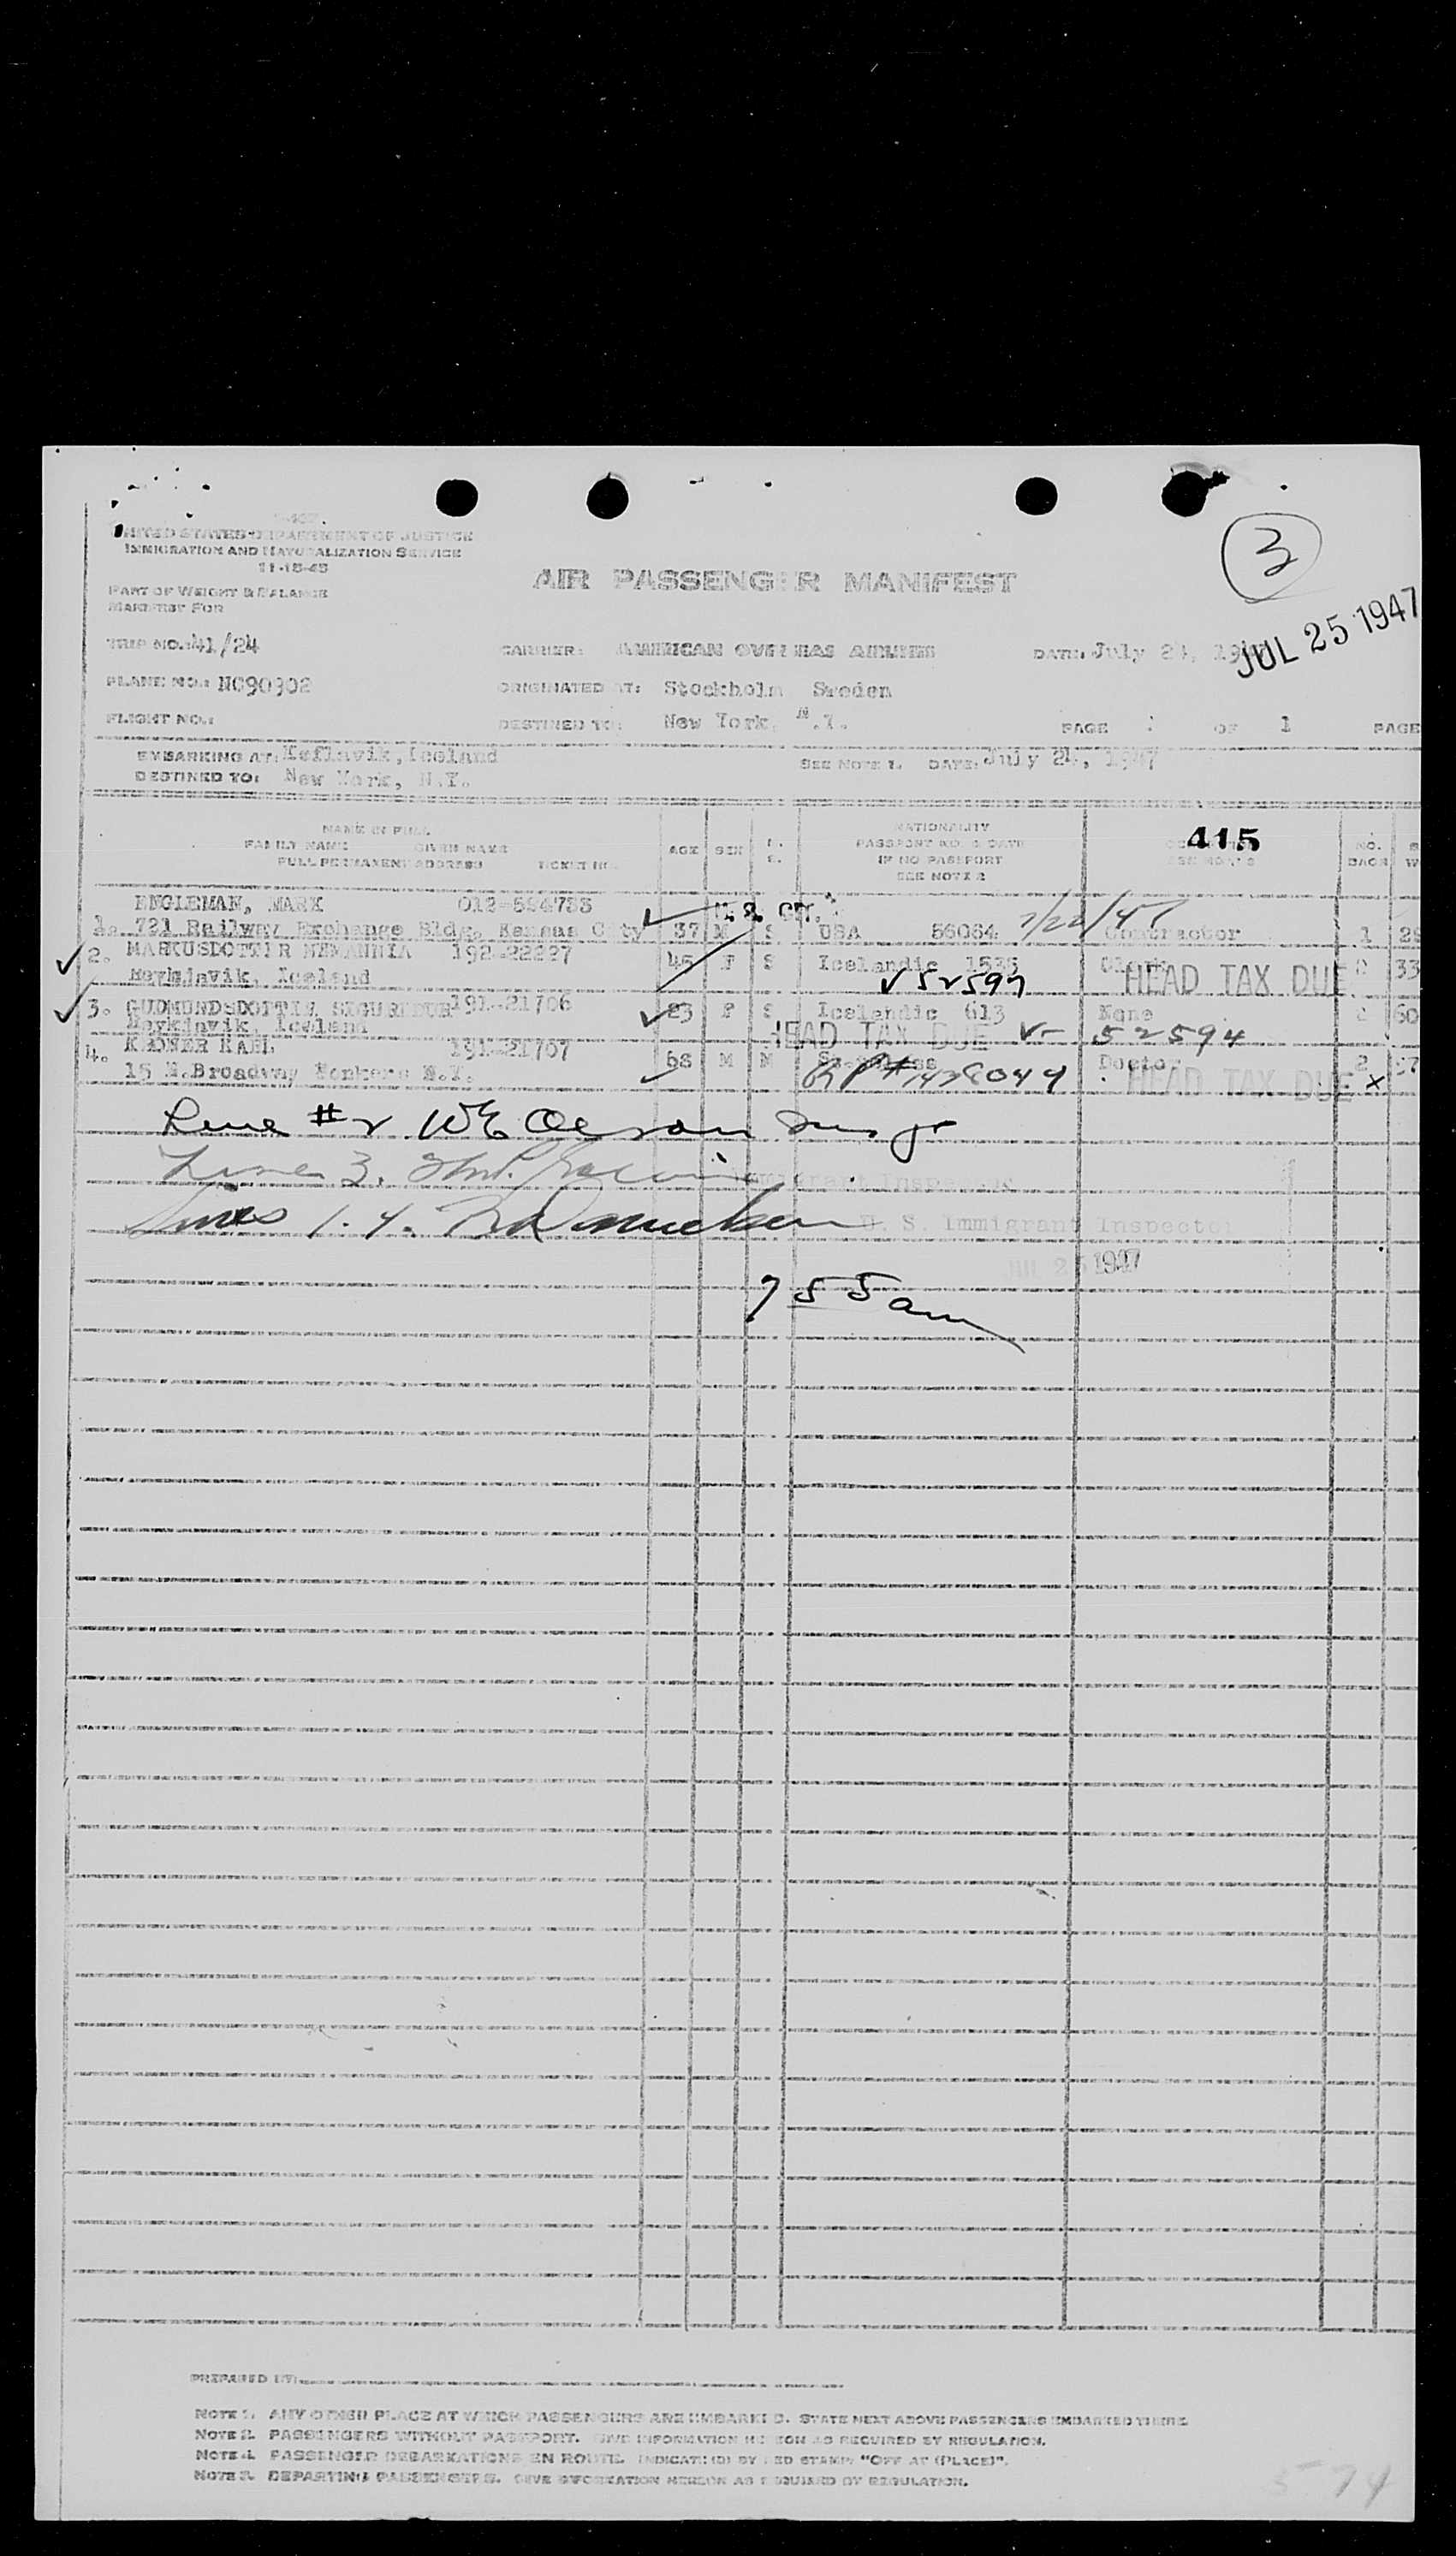 3
UNITED STATES DEPARTMENT OF JUSTICE
IMMIGRATION AND NATURALIZATION SERVICE
11-15-45
AIR PASSENGER MANIFEST
PART OF WEIGHT & BALANCE
MANIFEST FOR
JUL 25 1947
TRIP NO.: 41/24 CARRIER: AMERICAN OVERSEAS AIRLINES DATE: July 24,
PLANE NO.: NC90902 ORIGINATED AT: Stockholm Sweden
FLIGHT NO.: DESTINED TO: New York, N.Y. PAGE OF 1 PAGE
EMBARKING AT: Keflavik, Iceland SEE NOTE 1. DATE: July 24, 1947
DESTINED TO: New York, N.Y.
NAME IN FULL
FAMILY NAME GIVEN NAME
FULL PERMANENT ADDRESS TICKET NO.
AGE SEX
NATIONALITY
PASSPORT NO. & DATE
IF NO PASSPORT
SEE NOTE 2
415
NO.
BAGS
ENGLEMAN, MARK 012-594733 U. S. CIT.
1. 721 Railway Exchange Bldg. Kansas City 37 M S USA 56034 7/22/47 Contractor 1
2. MARKUSDOTTIR NEMANNIA 192-22227 46 F S Icelandic 1535
Reykjavik, Iceland 52597 HEAD TAX DUE 33
3. GUDMUNDSDOTTIR 191-21706 23 F S Icelandic 613 None 60
Reykjavik, Iceland HEAD TAX DUE 52594
4. 191-21707 68 M M Doctor 2
15 N.Broadway Yonkers N.Y. HEAD TAX DUE X
Line #2
Line 3.
Immigrant Inspector
Lines 1. 4.
U. S. Immigrant Inspector
JUL 25 1947
755 am
PREPARED BY:
NOTE 1. ANY OTHER PLACE AT WHICH PASSENGERS ARE EMBARKED. STATE NEXT ABOVE PASSENGERS EMBARKED THERE.
NOTE 2. PASSENGERS WITHOUT PASSPORT. GIVE INFORMATION HEREON AS REQUIRED BY REGULATION.
NOTE 4. PASSENGER DEBARKATIONS EN ROUTE. INDICATED BY RED STAMP "OFF AT (PLACE)".
NOTE 3. DEPARTING PASSENGERS. GIVE INFORMATION HEREON AS REQUIRED BY REGULATION.
574